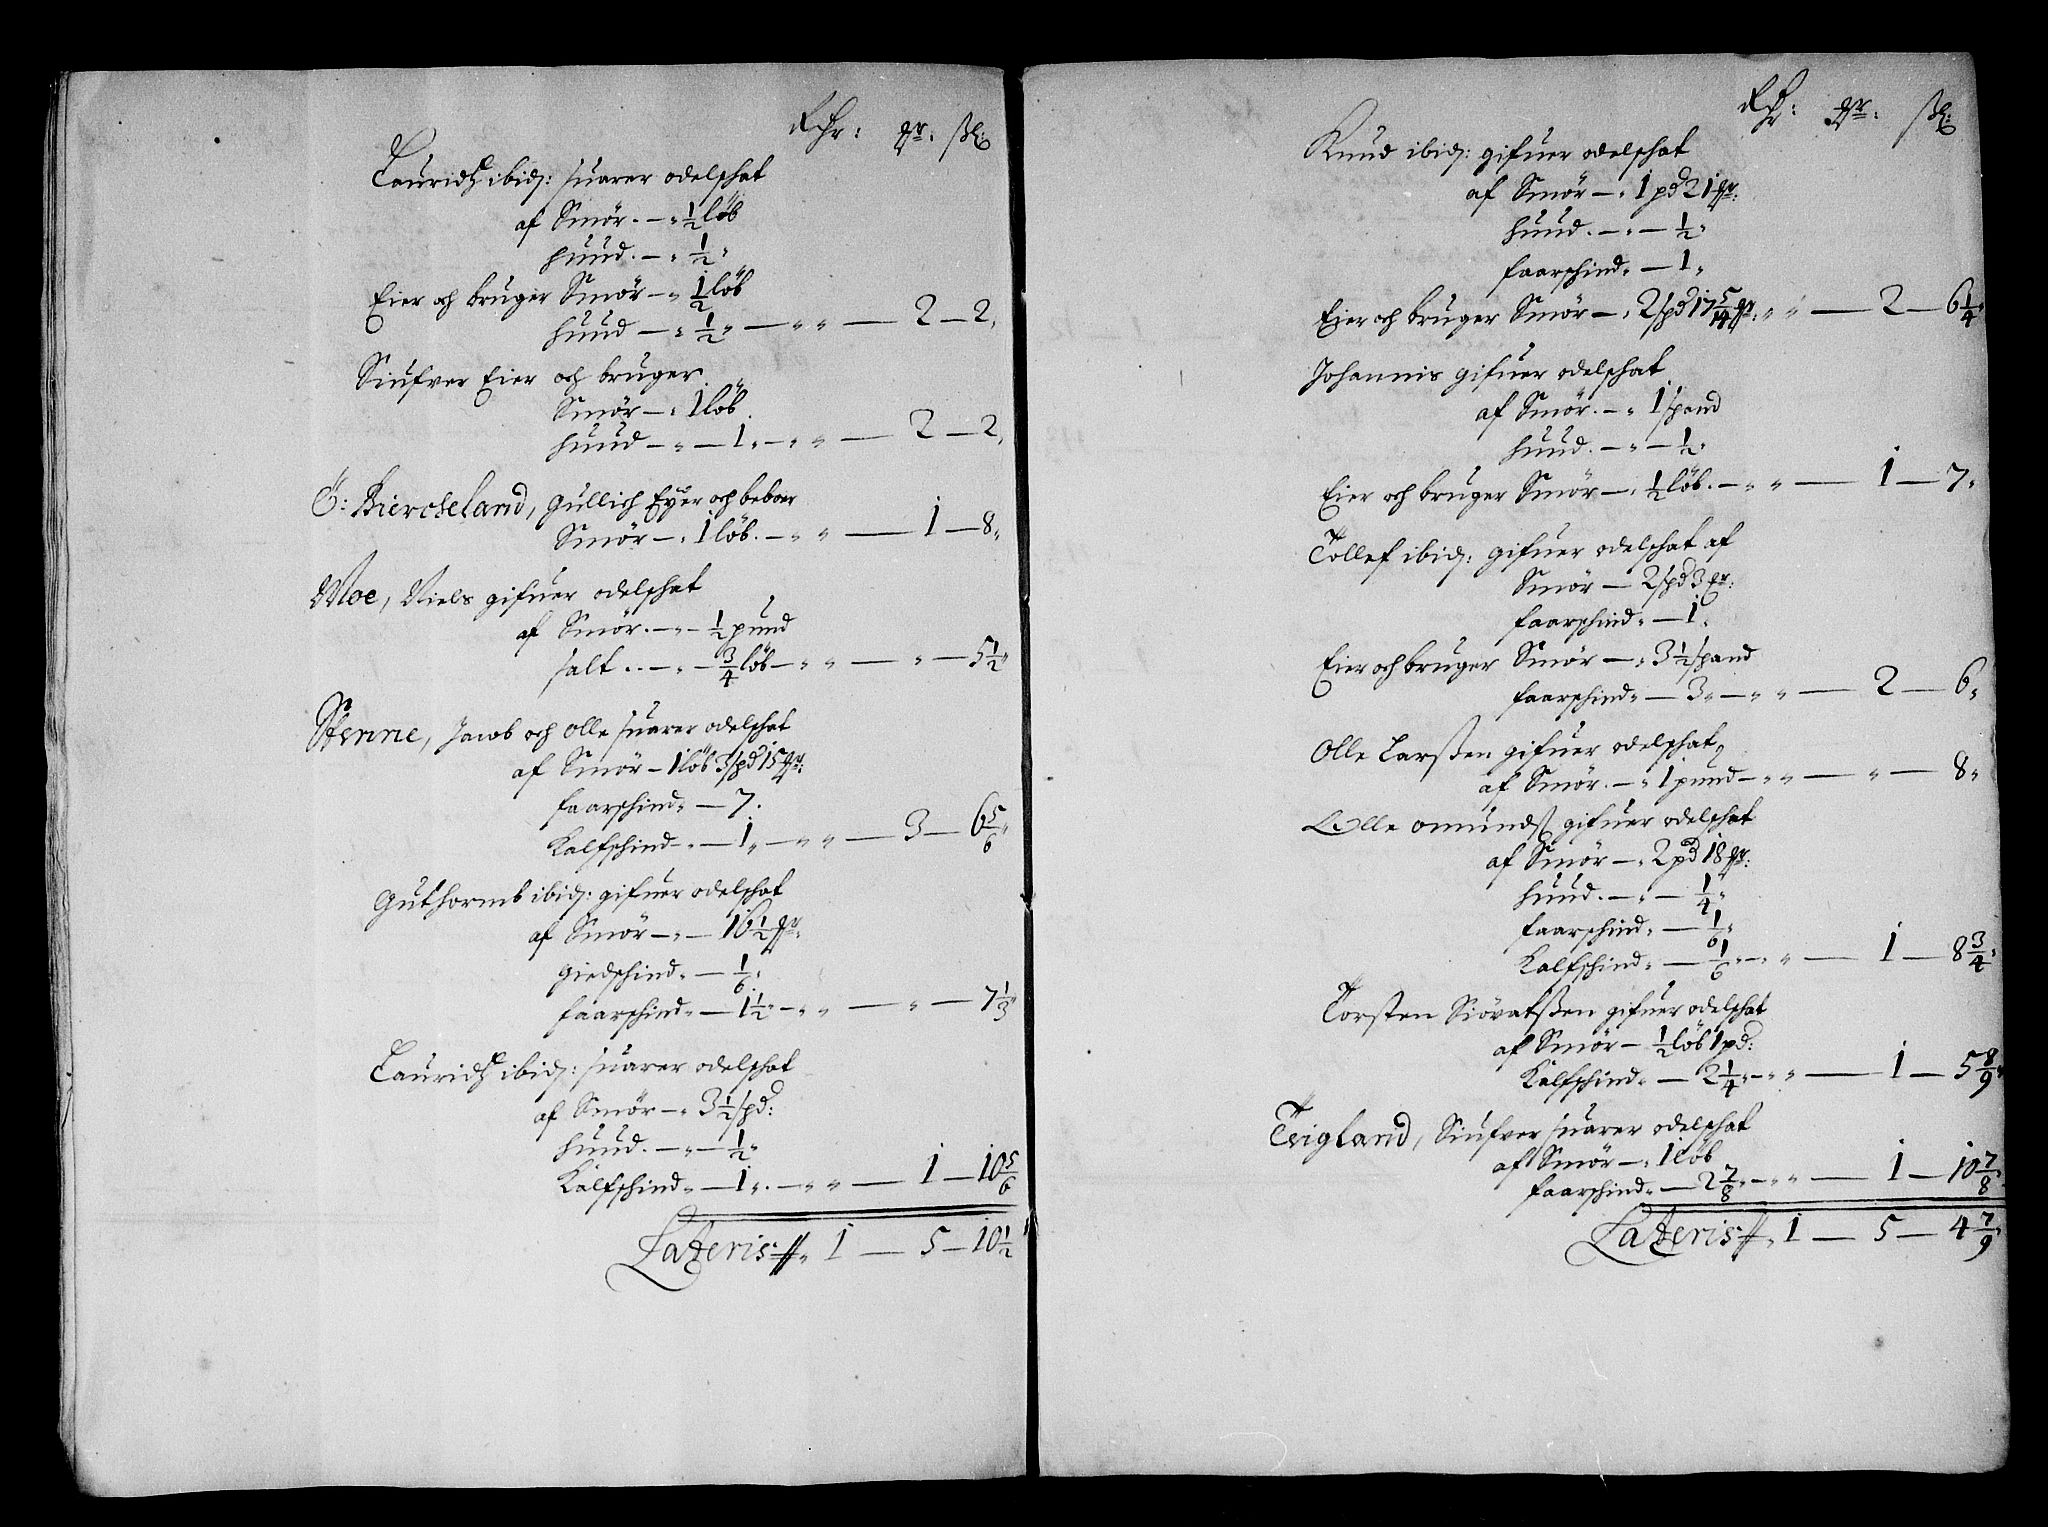 Rdr: qr. ßl:
Lauridtz ibid: suarer odelschat
af Smör. — „ ½ löb
huud. — „ ½ „
Eier och bruger Smör — „ ½ löb
huud — „ ½ „ — „ „ — 2 — 2 „
Siufver Eier och bruger.
Smör — „ 1 löb.
huud — „ — 1 „ — „ „ — 2 — 2 „
Ö: Bircheland, Gullich Eyer och beboer
Smör — „ 1 löb. — „ „ — 1 — 8 „
Moe, Niels gifuer odelschat
af Smör. — „ — ½ pund
salt .. — „ — ¾ löb — „ „ — „ — 5 ½ „
Stenne, Jacob och Olle suarer odelschat
af Smör — 1 löb 3 spd 15 qr:
faarschind „ — 7.
Kalfschind — „ — 1 „ — „ „ — 3 — 6 5/6 „
Guthormb ibid: gifuer odelschat
af Smör — „ — 16 ½ qr.
giedschind „ — 1/6 „
faarschind „ — 1 ½ „ — „ „ — „ — 7 1/3 „
Lauridtz ibid: suarer odelschat
af Smör — „ 3 ½ spd:
huud. — „ — ½ „
Kalfschind „ — 1 „ . — „ „ — 1 — 10 5/6
Lateris „ 1 — 5 — 10 ½
Rdr: qr. ßl:
Knud ibid: gifuer odelschat
af Smör — „ 1 pd 21 qr:
huud. — „ — ½ „
faarschind „ — 1 „
Eier och bruger Smör — „ 2 spd 17 5/14 qr. „ „ — 2 — 6 ¼ „
Johannis gifuer odelschat
af Smör. — „ 1 spand
huud. — „ — ½ „
Eier och bruger Smör — „ ½ löb. — „ „ — 1 — 7 „
Tollef ibid: gifuer odelschat af
Smör — 2 spd 3 qr:
faarschind „ — 1 „
Eier och bruger Smör — „ 3 ½ spand
faarschind „ — 3 „ — „ „ — 2 — 6 „
Olle Larßen gifuer odelschat
af Smör. — „ 1 pund — „ „ — „ — 8 „
Olle omunds gifuer odelschat
af Smör — „ 2 pd 18 qr:
huud. — „ — ¼ „
faarschind „ — 1/6 „
Kalfschind „ — 1/6 „ — „ — 1 — 8 ¾ „
Torsten Siövatßen gifuer odelschat
af Smör — ½ löb 1 pd:
Kalfschind „ — 2 ¼ „ — „ „ — 1 — 5 8/9 „
Tvigland, Siufver suarer odelschat
af Smör — „ 1 löb
faarschind „ — 2 7/8 „ — „ „ — 1 — 10 7/8 „
Lateris „ 1 — 5 — 4 7/9 „